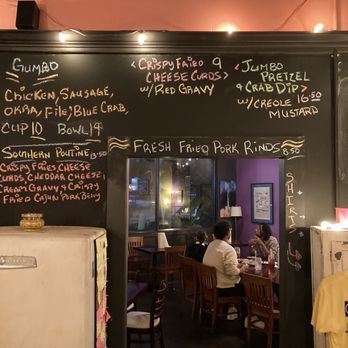 GUMBO
CHICKEN, SAUSAGE,
OKRA, FILE, BLUE CRAB
CUP 10 BOWL 19
SOUTHERN POUTINE 13.50
CRISPY FRIES, CHEESE
CURDS, CHEDDAR CHEESE
CREAM GRAVY & CRISPY
FRIED CAJUN PORK BELLY
CRISPY FRIED 9
CHEESE CURDS
W/RED GRAVY
JUMBO
PRETZEL
& CRAB DIP
W/CREOLE 16.50
MUSTARD
FRESH FRIED PORK RINDS 8.50
SHIRTS